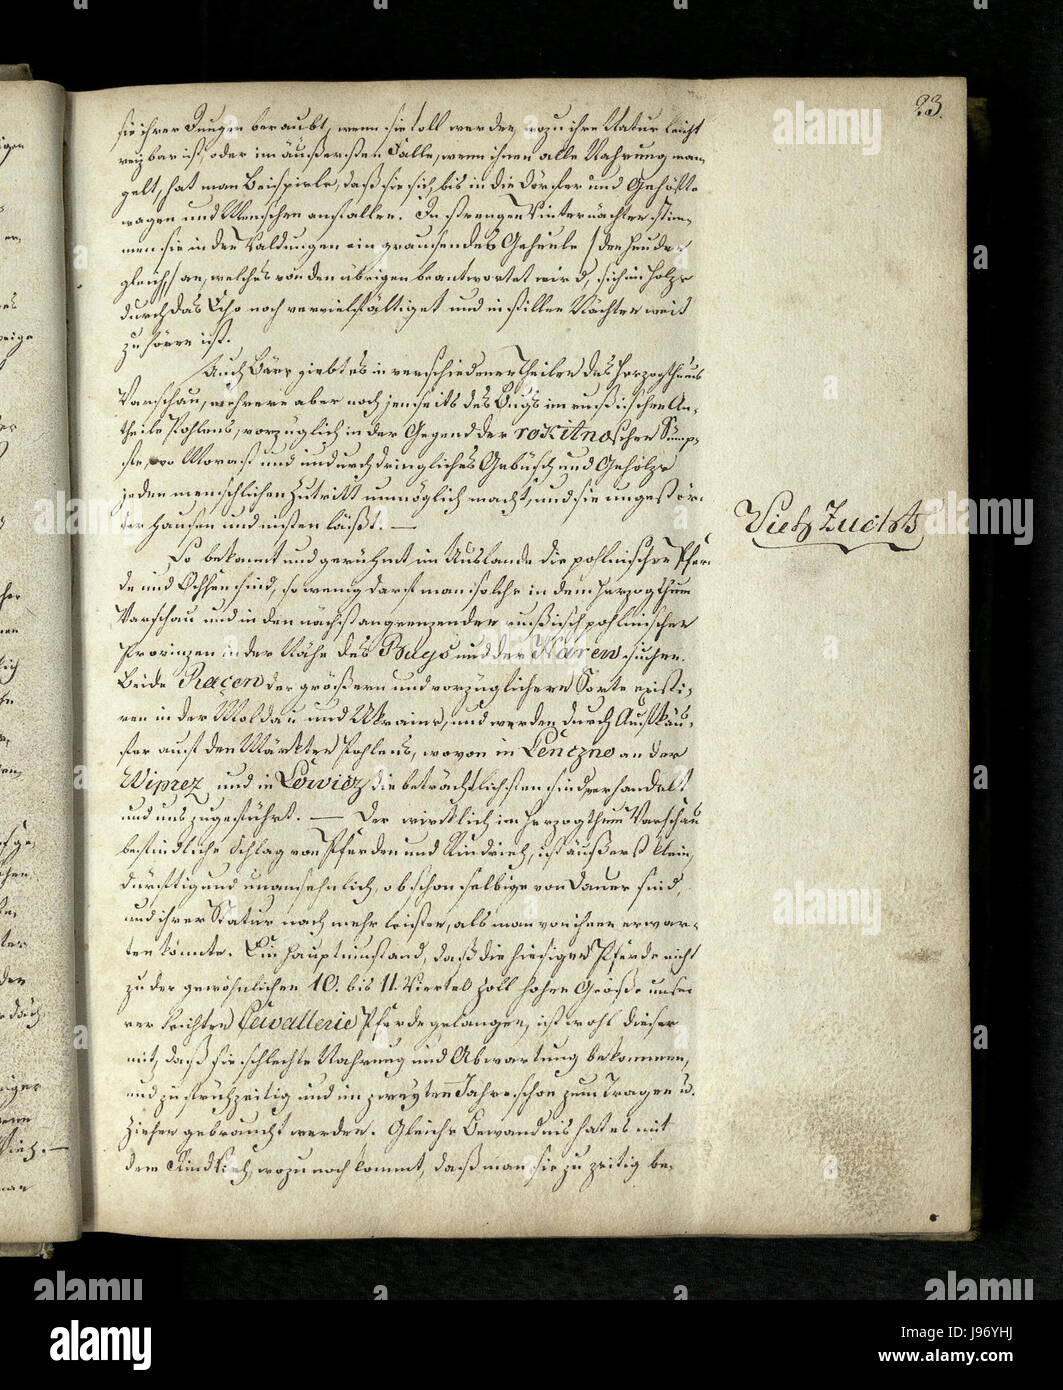 23.
sie ihrer Jungen beraubt, wenn sie toll werden, wozu ihre Natur leicht
reizbar ist, oder im äußersten Falle, wenn ihnen alle Nahrung man-
gelt, hat man Beispiele, daß sie sich bis in die Dörfer und Gehöfte
wagen und Menschen anfallen. In strengen Winternächten stim-
men sie in den Waldungen ein grausendes Geheule /den Hunden
gleich,/ an, welches von den übrigen beantwortet wird, sich im Holze
durch das Echo noch vervielfältiget und in stillen Nächten weit
zu hören ist.
Auch Bären giebt es in verschiedenen Theilen des Herzogthums
Warschau, mehrere aber noch jenseits des Bugs im rußischen An-
theile Pohlens, vorzüglich in der Gegend der rokitnoschen Sümp-
fe, wo Morast und undurchdringliches Gebüsch und Gehölze
jeden menschlichen Zutritt unmöglich macht, und sie ungestör-
ter hausen und nisten läißt. —
Vieh Zucht
So bekannt und gerühmt im Auslande die pohlnischen Pfer-
de und Ochsen sind, so wenig darf man solche in dem Herzogthum
Warschau und in den nächst angrenzenden rußisch pohlnischen
Provinzen in der Nähe des Bugs und der Narew suchen.
Beide Raçen der größern und vorzüglichern Sorte existi-
ren in der Moldau und Ukraine, und werden durch Aufkäu-
fer auf den Märkten Pohlens, wovon in Lenczno an der
Wiprez und in Lowicz die beträchtlichsten sind, verhandelt
und uns zugeführt. — Der wirklich im Herzogthum Warschau
befindliche Schlag von Pferden und Rindvieh, ist äußerst klein,
dürftig und unansehnlich, obschon selbige von Dauer sind,
und ihrer Statur nach mehr leisten, als man von ihnen erwar-
ten könnte. Ein Hauptumstand, daß die hiesigen Pferde nicht
zu der gewöhnlichen 10. bis 11. Viertel Zoll hohen Größe unse-
rer leichten Cavallerie Pferde gelangen, ist wohl dieser
mit, daß sie schlechte Nahrung und Abwartung bekommen,
und zu frühzeitig und im zweyten Jahre schon zum Tragen u.
Ziehen gebraucht werden. Gleiche Bewandnis hat es mit
dem Rindvieh, wozu noch kommt, daß man sie zu zeitig be-
alamy
a
alamy
Image ID: J96YHJ
www.alamy.com